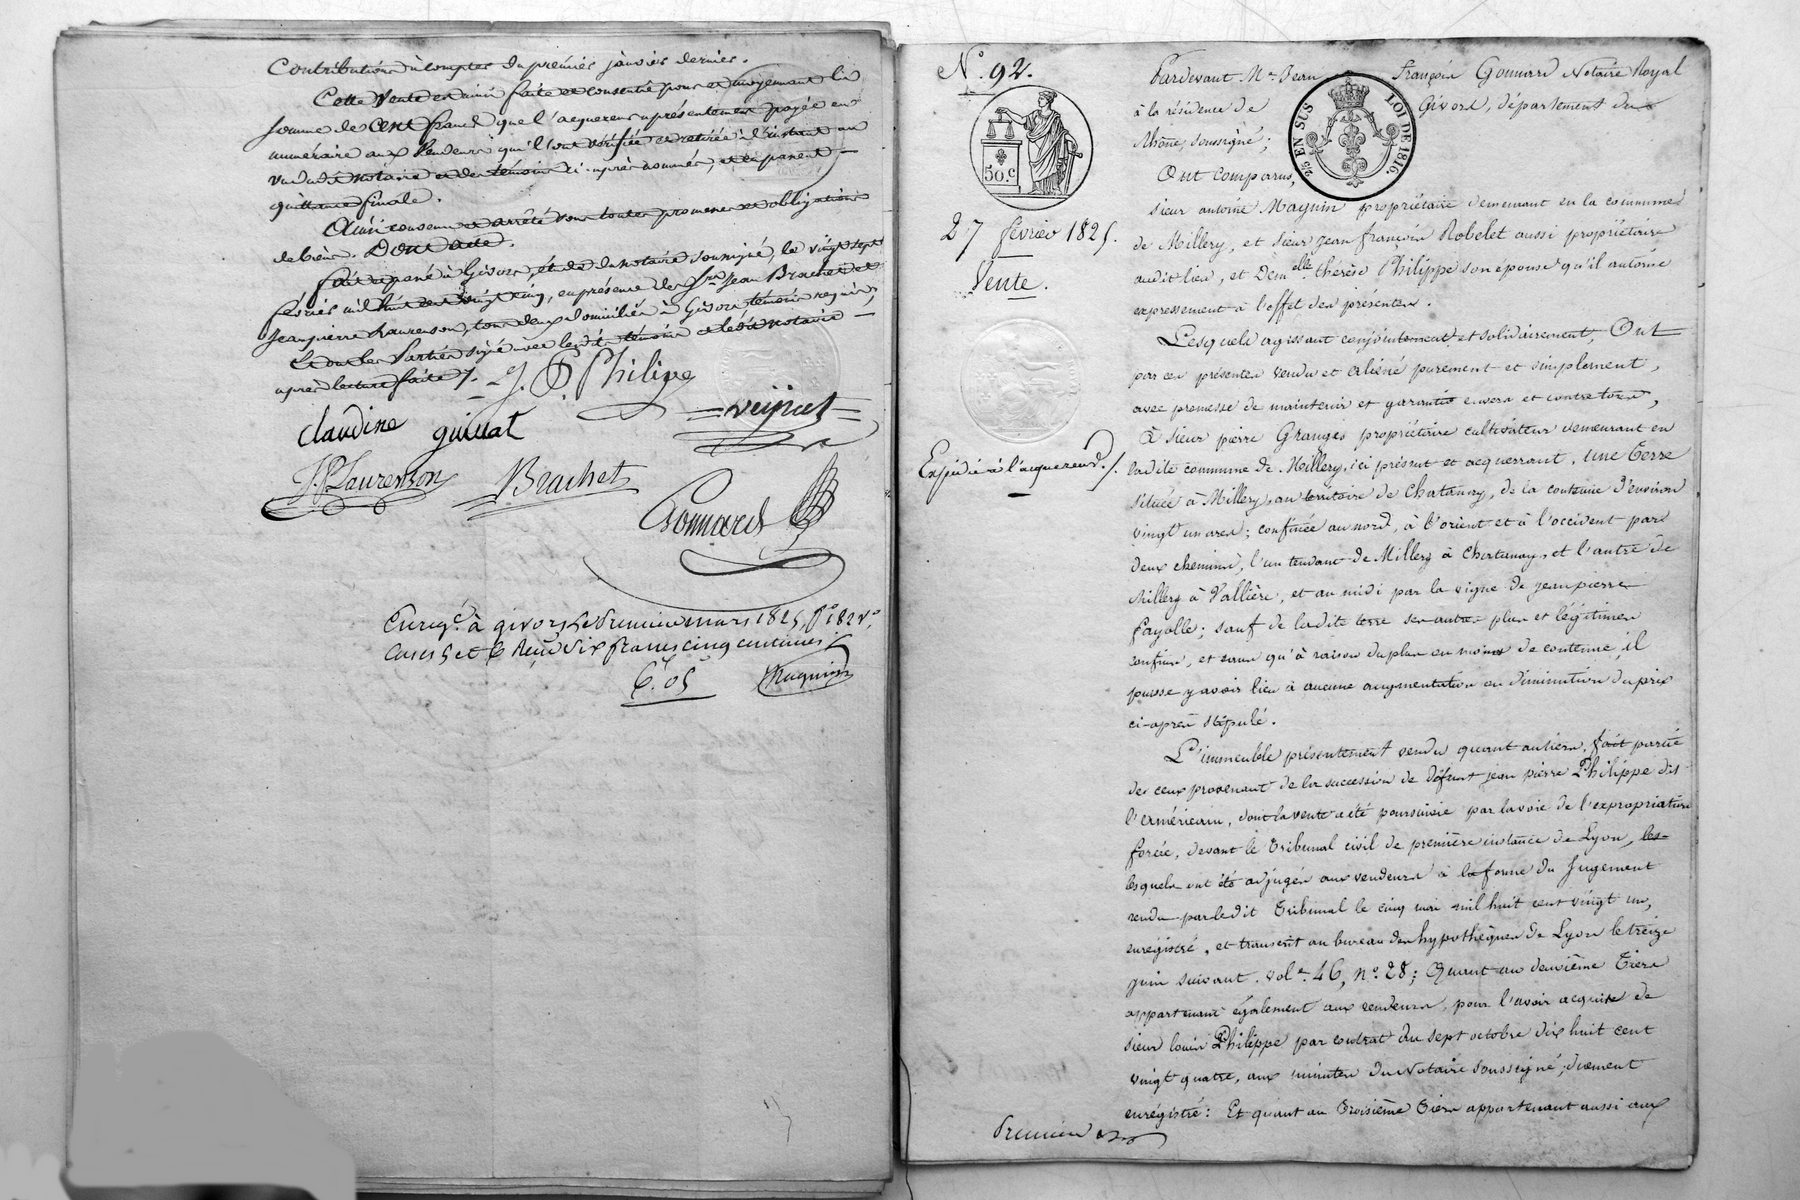 Contributions à compter du premier janvier dernier.
Cette vente est ainsi faite et consentie pour et moyennant la
somme de cent francs que l'acquereur a présentement payée en
numéraire aux vendeurs qui l'ont vérifiée et retirée à l'instant au
vu du dit notaire et des témoins ci-après nommés, et en passent
quittance finale.
Ainsi convenu et arrêté sous toutes promesses et obligations
de biens. Dont acte.
Fait et passé à Givors, étude du notaire soussigné, le vingt sept
février mil huit cent vingt cinq, en présence de Srs Jean Brachet et
Jeanpierre Laurenson, tous deux domiciliés à Givors témoins requis,
Et ont les Parties signé avec lesdits témoins et ledit notaire
après lecture faite /.
J. P Philipe
veyret
claudine guillat
J. P. Laurenson
Brachet
Gonnard
Enregé. à givors le Premier mars 1825, fo 182 vo,
cases 5 et 6 Reçu six francs cinq centimes
6. 05
No. 92.
50. C
25 EN SUS
LOI DE 1816.
27 février 1825.
Vente.
Expédié à l'acquereur /.
Pardevant Me Jean François Gonnard Notaire Royal
à la résidence de Givors, département du
Rhône, soussigné;
Ont comparus,
sieur antoine Maguin propriétaire demeurant en la commune
de Millery, et sieur jean françois Robelet aussi propriétaire
audit lieu, et Demelle thérèse Philippe son épouse qu'il autorise
expressement à l'effet des présentes.
Lesquels agissant conjointement et solidairement, Ont
par ces présentes vendu et aliéné purement et simplement,
avec promesse de maintenir et garantir envers et contre tous,
à sieur pierre Granges propriétaire cultivateur demeurant en
ladite commune de Millery, ici présent et acquerrant, une terre
située à Millery, au territoire de Chatanay, de la contenue d'environ
vingt un ares; confinée au nord, à l'orient et à l'occident par
deux chemins, l'un tendant de Millery à Chatanay, et l'autre de
Millery à Vallière, et au midi par la vigne de jeanpierre
Fayolle; sauf de ladite terre ses autres plus et légitimes
confins, et sans qu'à raison du plus ou moins de contenue, il
puisse y avoir lieu à aucune augmentation ou diminution du prix
ci-après stipulé.
L'immeuble présentement vendu quant au tiers, fait partie
de ceux provenant de la succession de défunt jean pierre Philippe dit
l'américain, dont la vente a été poursuivie par la voie de l'expropriation
forcée, devant le Tribunal civil de première instance de Lyon, les-
lesquels ont été adjugés aux vendeurs à la forme du Jugement
rendu par ledit Tribunal le cinq mai mil huit cent vingt un,
enregistré, et transcrit au bureau des hypothèques de Lyon le treize
juin suivant. vole. 46, no. 28; Quant au deuxième Tiers
appartenant également aux vendeurs, pour l'avoir acquise de
sieur louis Philippe par contrat du sept octobre dix huit cent
vingt quatre, aux minutes du Notaire soussigné, duement
enregistré: Et quant au troisième Tiers appartenant aussi aux
Premier